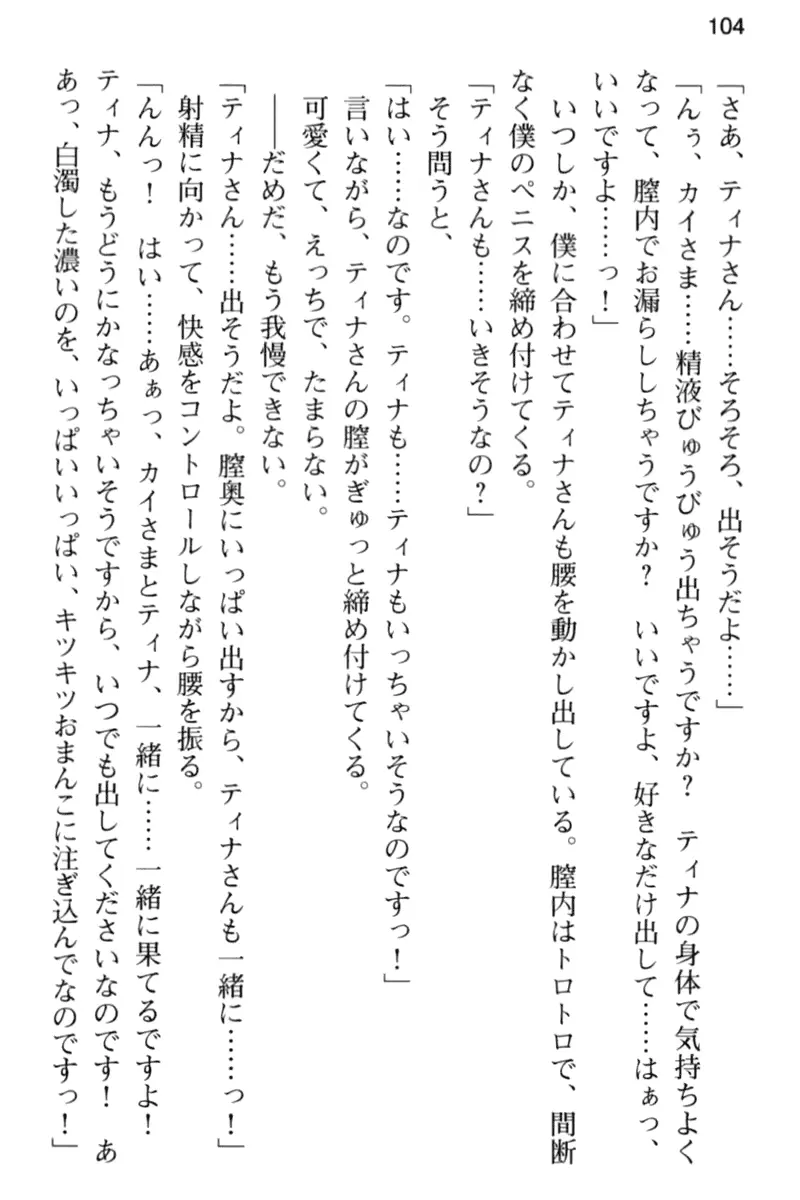 104
「さあ、ティナさん……そろそろ、出そうだよ……」
「んぅ、カイさま……精液びゅうびゅう出ちゃうですか？　ティナの身体で気持ちよく
なって、膣内でお漏らししちゃうですか？　いいですよ、好きなだけ出して……はぁっ、
いいですよ……っ！」
いつしか、僕に合わせてティナさんも腰を動かし出している。膣内はトロトロで、間断
なく僕のペニスを締め付けてくる。
「ティナさんも……いきそうなの？」
そう問うと、
「はい……なのです。ティナも……ティナもいっちゃいそうなのですっ！」
言いながら、ティナさんの膣がぎゅっと締め付けてくる。
可愛くて、えっちで、たまらない。
――だめだ、もう我慢できない。
「ティナさん……出そうだよ。膣奥にいっぱい出すから、ティナさんも一緒に……っ！」
射精に向かって、快感をコントロールしながら腰を振る。
「んんっ！　はい……あぁっ、カイさまとティナ、一緒に……一緒に果てるですよ！
ティナ、もうどうにかなっちゃいそうですから、いつでも出してくださいなのです！　あ
あっ、白濁した濃いのを、いっぱいいっぱい、キツキツおまんこに注ぎ込んでなのですっ！」